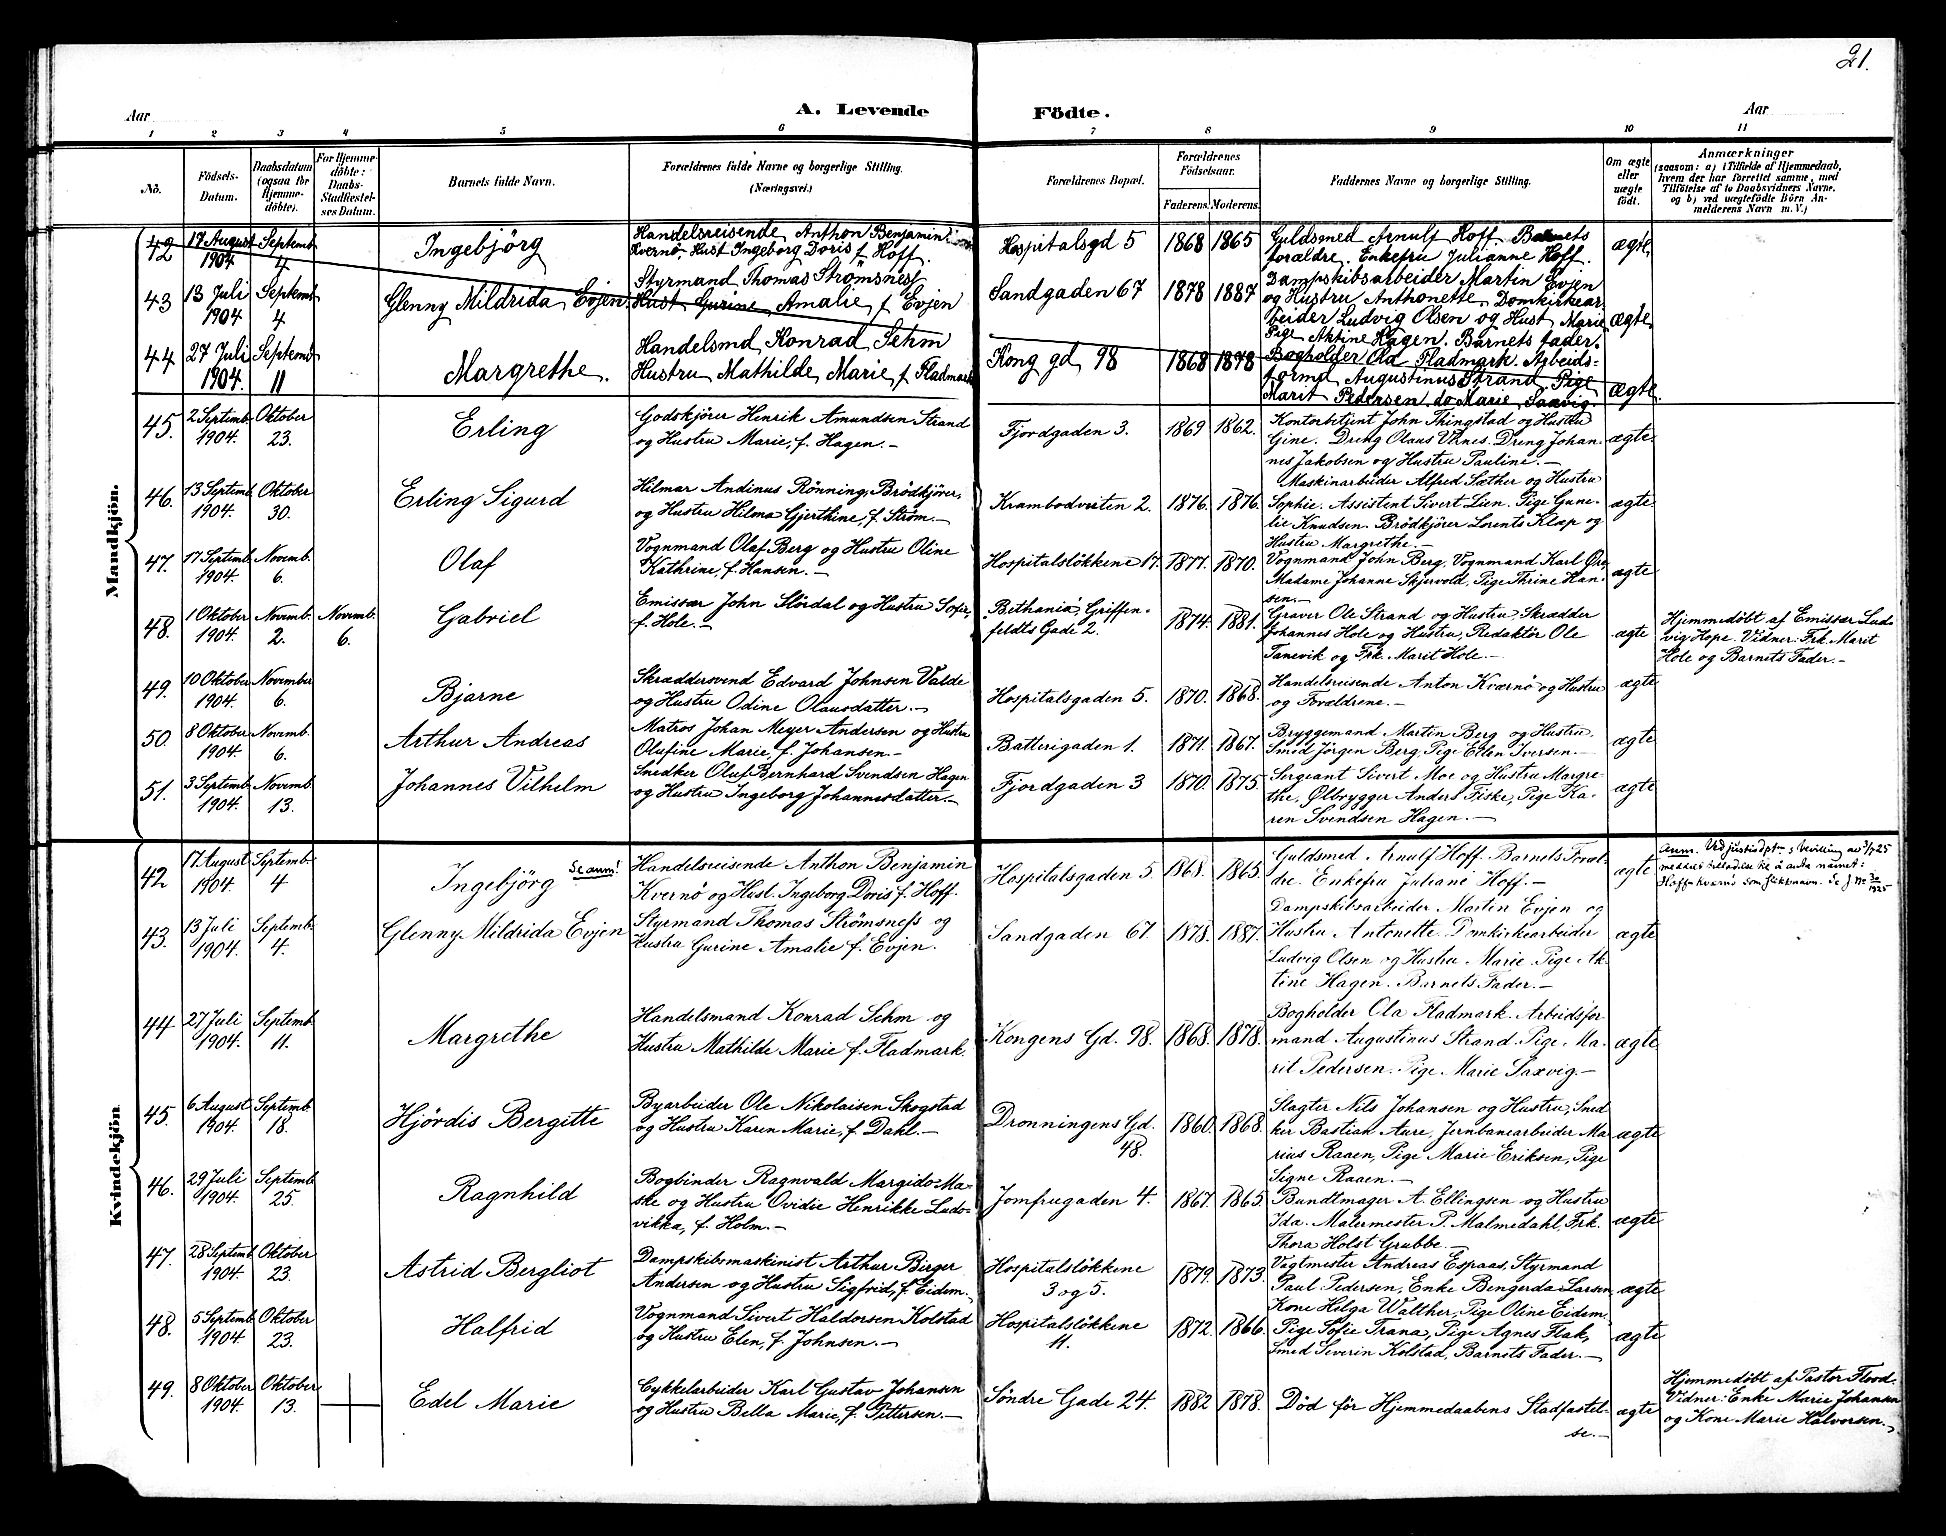 21.
Aar
A. Levende Födte.
Aar
1 2 3 4 5 6 7 8 9 10 11
No. Födsels-Datum. Daabsdatum (ogsaa for Hjemmedöbte). For Hjemmedöbte: Daabs-Stadfestelses Datum. Barnets fulde Navn. Forældrenes fulde Navne og borgerlige Stilling. (Næringsvei.) Forældrenes Bopæl. Forældrenes Födselsaar. Faderens. Moderens. Faddernes Navne og borgerlige Stilling. Om ægte eller uægte födt. Anmærkninger (saasom: a) i Tilfælde af Hjemmedaab, hvem der har forrettet samme, med Tilföielse af to Daabsvidners Navne. og b) ved uægtefödte Börn Anmelderens Navn m. V.)
Mandkjön.
42 17 August 1904 Septemb. 4 Ingebjörg Handelsreisende Anthon Benjamin Kvernö. Hust Ingeborg Doris f Hoff. Hospitalsgd 5 1868 1865 Guldsmed Arnulf Hoff. Barnets forældre. Enkefru Julianne Hoff. ægte
43 13 Juli 1904 Septemb 4 Glenny Mildrida Evjen Styrmand Thomas Strömsnes Hust Gurine Amalie f Evjen Sandgaden 67 1878 1887 Dampskibsarbeider Martin Evjen og Hustru Anthonette, Domkirkearbeider Ludvig Olsen og Hust Marie Pige Aktine Hagen. Barnets fader. ægte
44 27 Juli 1904. Septemb 11 Margrethe. Handelsmd Konrad Sehm Hustru Mathilde Marie f Fladmark Kong gd 98 1868 1878 Bogholder Ola Fladmark. Arbeidsformd Augustinus Strand. Pige Marit Pedersen. do Marie Saxvig. ægte.
45. 2 Septemb. 1904. Oktober 23. Erling Godskjörer Henrik Amundsen Strand og Hustru Marie, f. Hagen.— Fjordgaden 3. 1869 1862. Kontorbetjent John Thingstad og Hustru Gine. Dreng Olaus Vinnes. Dreng Johannes Jakobsen og Hustru Pauline.— ægte
46. 13 Septemb. 1904. Oktober 30. Erling Sigurd Hilmar Andinus Rönning, Brödkjörer, og Hustru Hilma Gjerthine, f. Ström.— Krambodveiten 2. 1876. 1876. Maskinarbeider Alfred Sæther og Hustru Sophie. Assistent Sivert Lien. Pige Gunelie Knudsen. Brödkjörer Lorents Klæp og Hustru Margrethe.— ægte
47. 17 Septemb. 1904. Novemb. 6. Olaf Vognmand Olaf Berg og Hustru Oline Kathrine, f. Hansen.— Hospitalslökkene 17. 1877. 1870. Vognmand John Berg, Vognmand Karl Öre Madame Johanne Skjervold, Pige Thrine Hansen.— ægte
48. 1 Oktober 1904. Novemb. 2. Novemb. 6. Gabriel Emissær John Slördal og Hustru Sofie, f. Hole.— Bethania, Griffenfeldts Gade 2. 1874. 1881. Graver Ole Strand og Hustru, Skrædder Johannes Hole og Hustru, Redaktör Ole Tanevik og Frk. Marit Hole.— ægte Hjemmedöbt af Emissær Ludvig Hope. Vidner: Frk Marit Hole og Barnets Fader.—
49. 10 Oktober 1904. November 6. Bjarne Skræddersvend Edvard Johnsen Valde og Hustru Odine Olausdatter.— Hospitalsgaden 5. 1870. 1868. Handelsreisende Anton Kværnö og Hustru og Forældrene.— ægte
50. 8 Oktober 1904. Novemb. 6. Arthur Andreas Matros Johan Meyer Andersen og Hustru Olufine Marie f. Johansen.— Batterigaden 1. 1871. 1867. Bryggemand Martin Berg og Hustru. Smed Jörgen Berg, Pige Ellen Iversen.— ægte
51. 3 Septemb. 1904. Novemb. 13. Johannes Vilhelm Snedker Oluf Bernhard Svendsen Hagen og Hustru Ingeborg Johannesdatter.— Fjordgaden 3 1870. 1875. Sergeant Sivert Moe og Hustru Margrethe, Ölbrygger Anders Fiske, Pige Karen Svendsen Hagen.— ægte
Kvindekjön
42 17 August 1904. Septemb. 4 Ingebjörg Se anm! Handelsreisende Anthon Benjamin Kvernö og Hust. Ingeborg Doris f. Hoff. Hospitalsgaden 5. 1868. 1865. Guldsmed Arnulf Hoff. Barnets Forældre. Enkefru Juliane Hoff.— ægte Anm. Ved justisdpt-s bevilling av 3/7 25 meddelt tilladelse til å anta navnet: Hoff-Kværnö som slektsnavn. Se J. No 30/1925
43. 13 Juli 1904. Septemb. 4. Glenny Mildrida Evjen Styrmand Thomas Strömsness og Hustru Gurine Amalie f. Evjen. Sandgaden 67. 1878. 1887. Dampskibsarbeider Martin Evjen og Hustru Antonette. Domkirkearbeider Ludvig Olsen og Hustru Marie. Pige Aktine Hagen. Barnets Fader.— ægte
44 27 Juli 1904. Septemb. 11. Margrethe Handelsmand Konrad Sehm og Hustru Mathilde Marie f. Fladmark. Kongens Gd. 98. 1868. 1878. Bogholder Ola Fladmark. Arbeidsformand Augustinus Strand. Pige Marit Pedersen. Pige Marie Saxvig.— ægte
45. 6 August 1904. Septemb. 18. Hjördis Bergitte Byarbeider Ole Nikolaisen Skogstad og Hustru Karen Marie, f. Dahl.— Dronningens Gd. 48. 1860. 1868. Slagter Nils Johansen og Hustru, Snedker Bastian Aure, Jernbanearbeider Marius Raaen, Pige Marie Eriksen, Pige Signe Raaen.— ægte
46. 29 Juli 1904. Septemb. 25. Ragnhild Bogbinder Ragnvald Margido Maske og Hustru Ovidie Henrikke Ludovikka, f. Holm.— Jomfrugaden 4. 1867. 1865. Bundtmager A. Ellingsen og Hustru Ida. Malermester P. Malmedahl, Frk. Thora Holst Grubbe.— ægte
47. 28 Septemb. 1904. Oktober 23. Astrid Bergliot Dampskibsmaskinist Arthur Birger Andersen og Hustru Sigfrid, f. Eidem. Hospitalslökkene 3 og 5. 1879. 1873. Vagtmester Andreas Espaas, Styrmand Paul Pedersen, Enke Bengerda Larsen Kone Helga Walther, Pige Oline Eidem. ægte
48. 5 Septemb. 1904 Oktober 23. Halfrid Vognmand Sivert Haldorsen Kolstad og Hustru Elen, f. Johnsen.— Hospitalslökkene 11. 1872. 1866. Pige Sofie Trana, Pige Agnes Flak, Smed Severin Kolstad, Barnets Fader.— ægte
49. 8 Oktober 1904. Oktober 13. Edel Marie Cykkelarbeider Karl Gustav Johansen og Hustru Bella Marie, f. Pettersen.— Söndre Gade 24. 1882 1878. Död för Hjemmedaabens Stadfæstelse.— ægte Hjemmedöbt af Pastor Flood. Vidner: Enke Marie Johansen og Kone Marie Halvorsen.